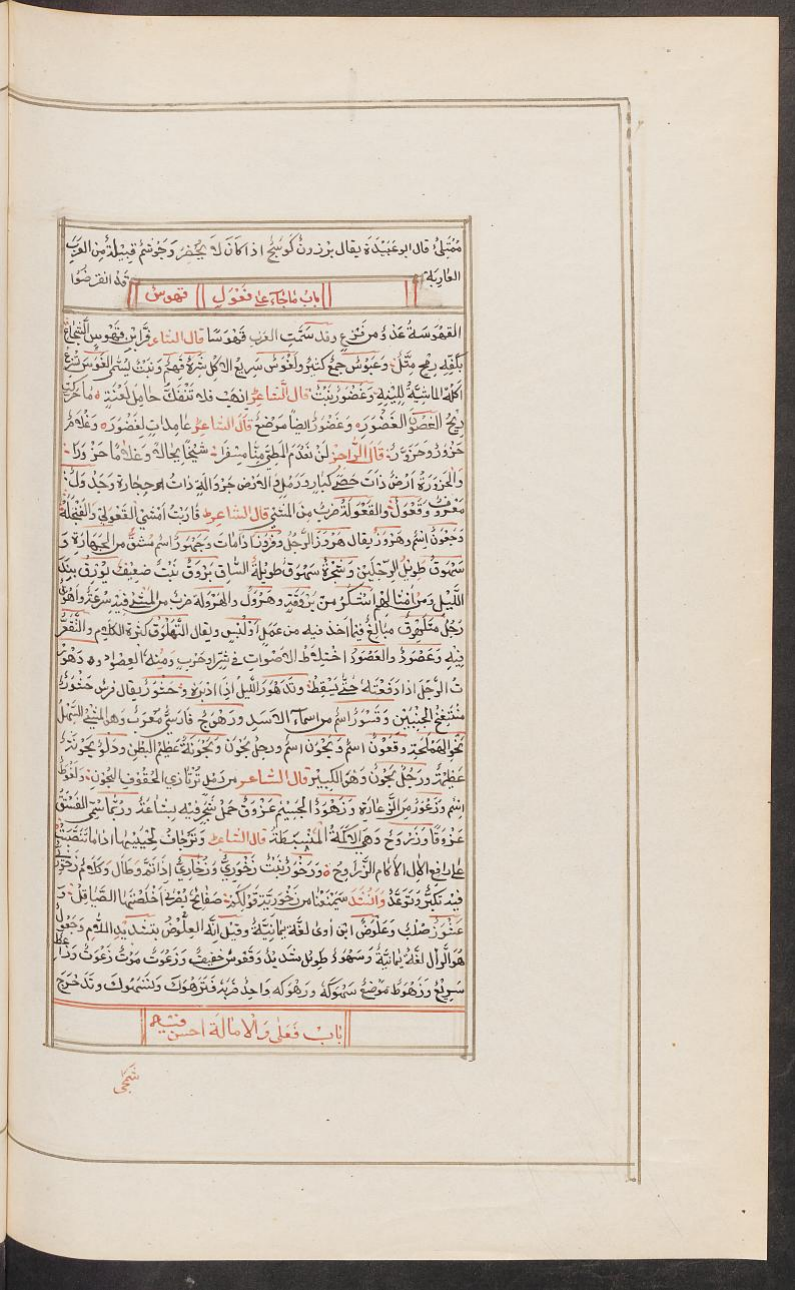 ممتلئ قال ابو عبيدة يقال برذون كوسج اذا كان لا يحضر وجوشم قبيلة من العرب
العاربة قد انقرضوا
باب ما جآء على فعول قهوس
القهوسة عدو من فزع وقد سمت العرب قهوسا قال الشاعر فرّ ابن قهوس الشجاع
بكفه رمح متل وعبوس جمع كثير ولغوس سريع الاكل شره فهم ونبت ليسمى الغوس تسرع
اكله الماشية للينه وغضور نبت قال الشاعر اذهب فلا تنفك حامل لعنة ما حركت
ريح الغضور وغضور ايضا موضع قال الشاعر عامدات لغضوره وغلام
حزور وحزور قال الراجز لن نعدم المطي منا مسفرا شيخا بجالا وغلاما حزورا
والحزورة ارض ذات حصى كبار وجرول الارض جرولة ذات حجارة وجدول
معروف وقعول والقعولة ضرب من المشي قال الشاعر قاربت امشي القعولى والفنجله
وجعون اسم وهروز يقال هروز الرجل وفروز اذا مات وجهور اسم مشتق من الجهارة و
سهوق طويل الرجلين وشجرة سهوق طويلة الساق بروق نبت ضعيف يورق بندى
الليل ومن امثالهم اشكر من بروقة وهرول والهرولة ضرب من المشي فيه سرعة
رجل متلهوق مبالغ فيما اخذ فيه من عمل او لبس ويقال التلهوق كثرة الكلام والتقعر
فيه وعصود والعصود اختلاط الاصوات في شر او حرب ومنه العصواد ودهور
ت الرجل اذا دفعته حتى يسقط وتدهور الليل اذا ادبر وحشور يقال فرس حشور
منتفخ الجنبين وقسور اسم من اسمآء الاسد ورهوج فارسي معرب وهو المشي السهل
نحو الهملجة وقعون اسم وبجون اسم ورجل بجون وبجونة عظيم البطن ودلو بجونة
عظيمة ورجل بجون وهو الكبير قال الشاعر من رمل ترنى ذي الحقوف البحون ولغوط
اسم وزعور من الزعارة وزهود الجسيم عزوق حمل شجر فيه بشاعة وربما سمي الفستق
عزوقا وزروح وهي الاكمة المنبسطة قال الشاعر وترجاف لحييها اذا ما تنصبت
على رافع الال الاكام الزراوح وزخور نبت زخوري وزخاري اذا تم وطال وكلام زخوري
فيه تكبر وتوعد وانشد سيمنعنا من زخورية قولكم صفائح بصرى اخلصتها الصياقل و
عشوز صلب وعلوض ابن اوى لغة يمانية وقيل انه العلوض بتشديد اللام وجعول
هو الرال لغة يمانية وسهود طويل شديد وقعوس خفيف وزعوت موت
سريع وزهوط موضع سهوكة ورهوكه واحد فتزهوك وتسهوك وتدحرج
باب فعلى والامالة احسن فيه